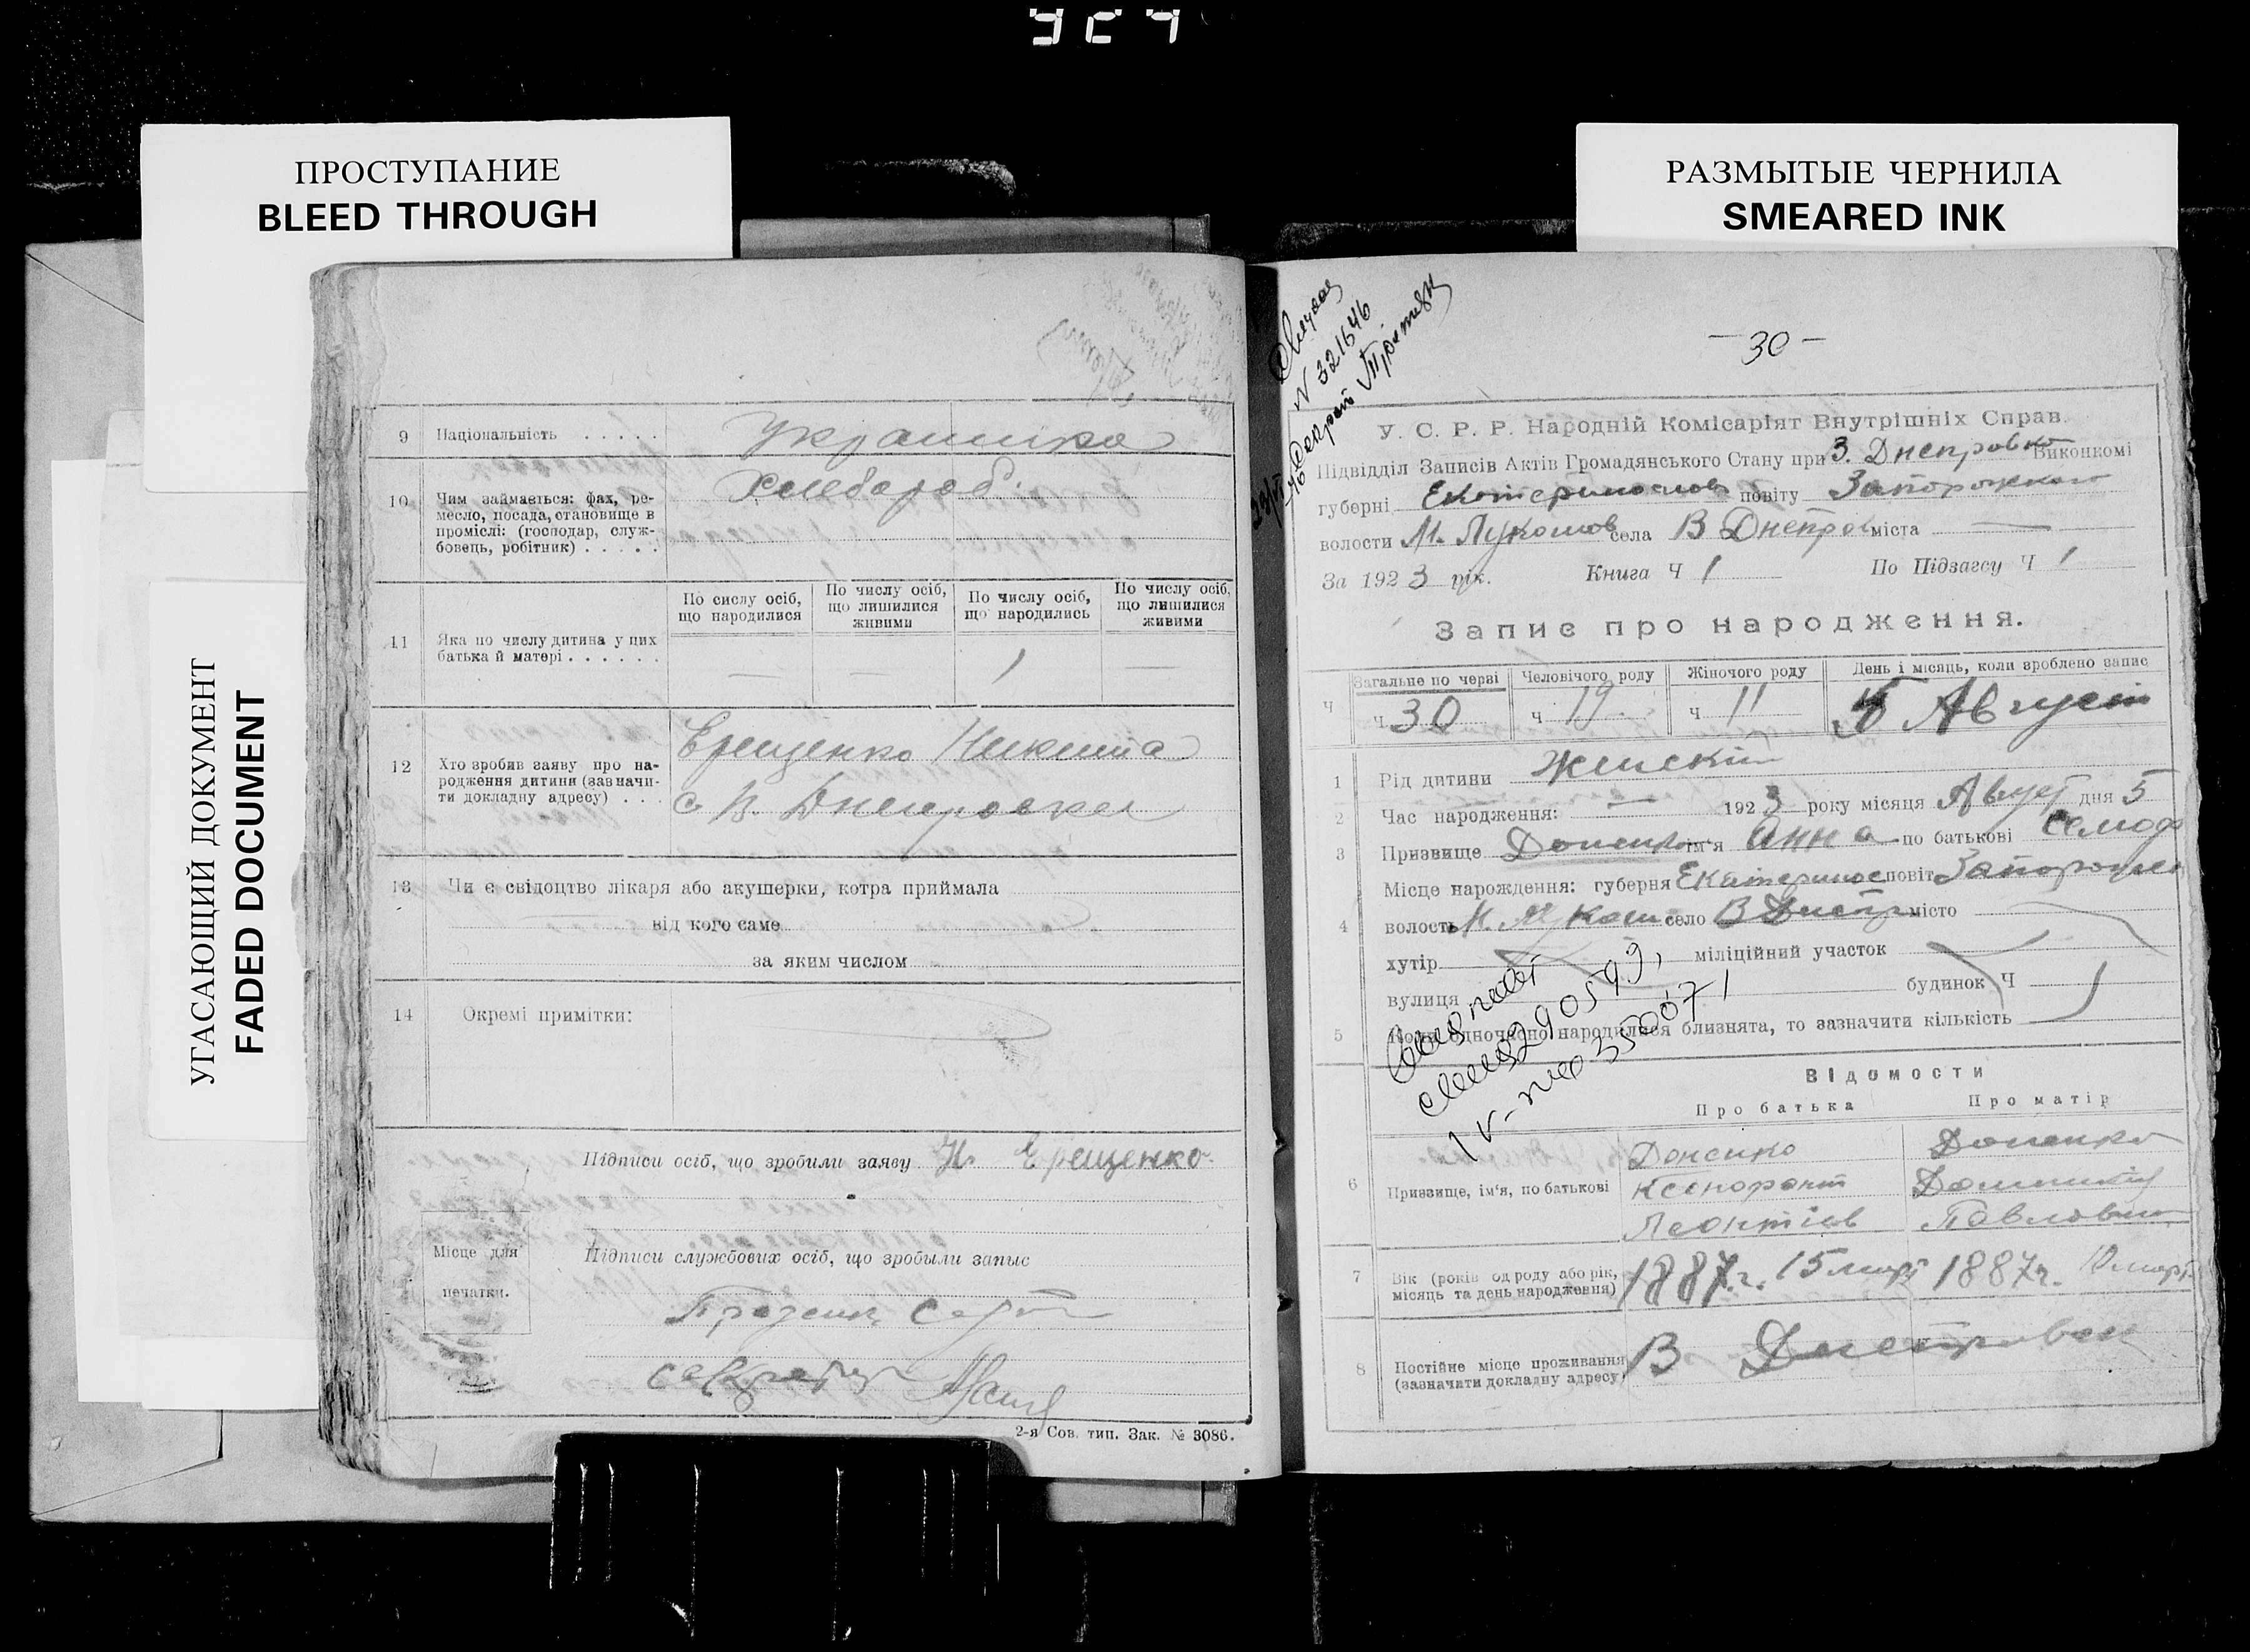 ПРОСТУПАНИЕ
BLEED THROUGH
РАЗМЫТЫЕ ЧЕРНИЛА
SMEARED INK
УГАСАЮЩИЙ ДОКУМЕНТ
FADED DOCUMENT
9 Національність . . . . . Украинка
10 Чим займається: фах, ре-
месло, посада, становище в
проміслі: (господар, служ-
бовець, робітник) . . . . .
Хлебороб.
11 Яка по числу дитина у цих
батька й матері . . . . . .
По сислу осіб,
що народилися
По числу осіб,
що лишилися
живими
По числу осіб,
що народились
По числу осіб,
що лишилися
живими
— — 1 —
12 Хто зробив заяву про на-
родження дитини (зазначи-
ти докладну адресу) . . .
Ерещенко Никита
с В. Днепровка
13 Чи є свідоцтво лікаря або акушерки, котра приймала
від кого саме
за яким числом
14 Окремі примітки:
Підписи осіб, що зробили заяву Н. Ерещенко
Місце для
печатки.
Підписи службових осіб, що зробыли запыс
2-я Сов. тип. Зак. № 3086.
— 30 —
N 321646
У. С. Р. Р. Народній Комісаріят Внутрішніх Справ.
Підвідділ Записів Актів Громадянського Стану при В. Днепровко Виконкомі
губерні Екатеринослов повіту Запорожкого
волости М. Лукошов села В Днепров міста —
За 1923 рік. Книга Ч 1 По Підзагсу Ч 1
Запис про народження.
Загальне по черві Человічого роду Жіночого роду День і місяць, коли зроблено запис
Ч ч 30 ч 19 ч 11 5 Август
1 Рід дитини Женский
2 Час народження: — 1923 року місяця Август дня 5
3 Призвище Доненко ім'я Анна по батькові
4 Місце нарождення: губерня Екатеринос повіт
волость М. Лукош село В Днепр місто
хутір міліційний участок
вулиця будинок Ч
5 Коли одночасно народилися близнята, то зазначити кількість
ВІДОМОСТИ
Про батька Про матір
6 Призвище, ім'я, по батькові
Доненко Доненко
Ксенофонт
Леонтіев Павловна
7 Вік (років од роду або рік,
місяць та день народження)
1887г. 15 март 1887г. 10 март
8 Постійне місце проживання
(зазначити докладну адресу)
В Днепровка